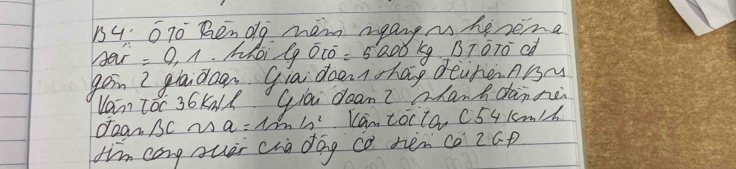 B4: Ô TÔ trên độ nằm ngang vs hệ số ma
sát = 0,1. khối lg ô tô = 5000 kg. BT ô tô cđ
gồm 2 giai đoạn. Giai đoạn 1 thẳng đều trên AB vs
Vận tốc 36 Km/h. Giai đoạn 2 nhanh dần trên
đoạn BC vs a = 1m/s² Vận tốc tại C 54 km/h
tìm công suất của động cơ trên cả 2 GĐ